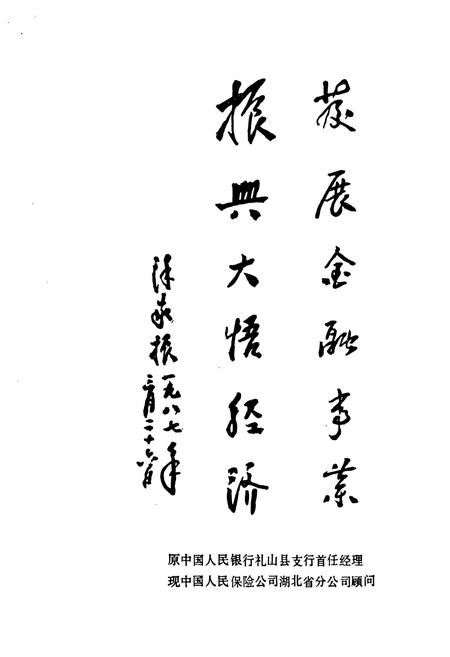 发展金融事业
振兴大悟经济
家振一九八七年
二月二十六日
原中国人民银行礼山县支行首任经理
现中国人民保险公司湖北省分公司顾问